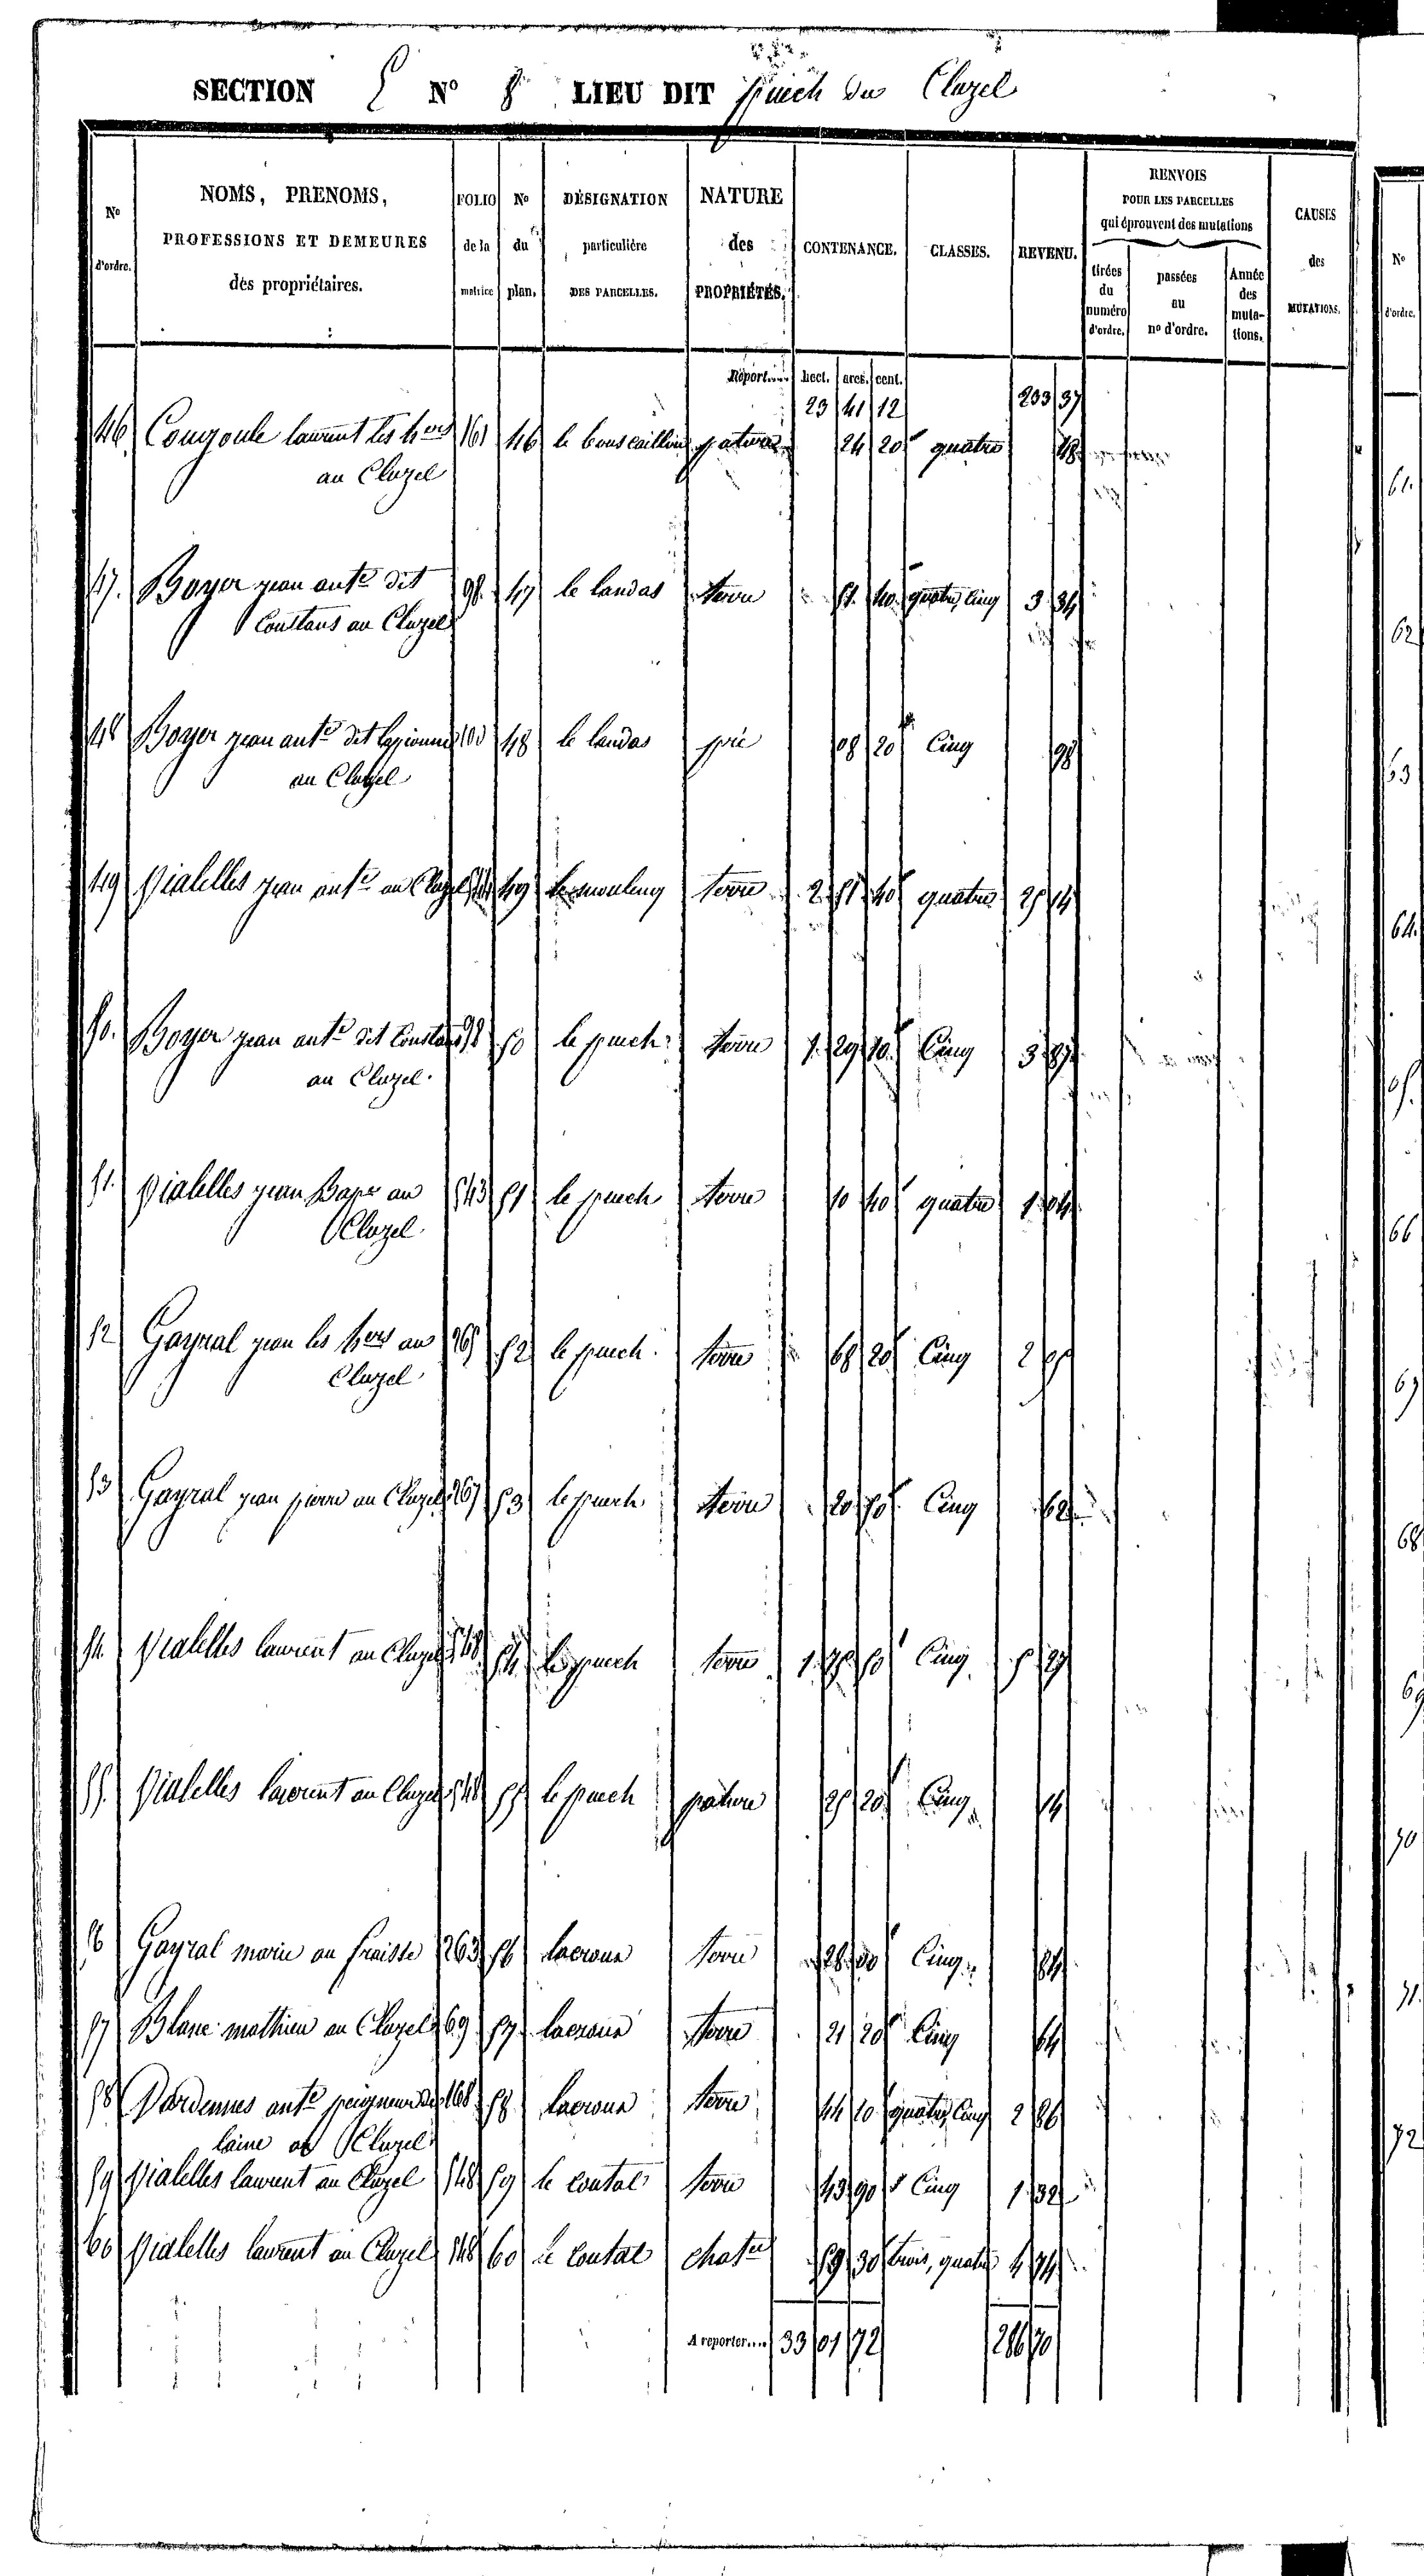 SECTION N° 8 LIEU DIT Puech du Cluzel
N° d'ordre.
NOMS, PRENOMS,
PROFESSIONS ET DEMEURES
des propriétaires.
FOLIO de la matrice
N° du plan.
DÉSIGNATION particulière DES PARCELLES.
NATURE des PROPRIÉTÉS.
CONTENANCE.
CLASSES.
REVENU.
RENVOIS
POUR LES PARCELLES
qui éprouvent des mutations
tirées du numéro d'ordre.
passées au n° d'ordre.
Année des muta-tions.
CAUSES des MUTATIONS.
N° d'ordre.
Report.... hect. ares. cent.
23 41 12 203 37
46 laurent les hers 161 46 pature 24 20 quatre 48
au Cluzel
47. Boyer jean ante dit 98 47 le landas terre 51 40 quatre, cinq 3 34
Constans au Cluzel
48 Boyer jean ante dit 48 le landas pré 08 20 Cinq 98
au Cluzel
49 Vialelles jean ante au Cluzel 49 terre 2 51 40 quatre 25 14
50. Boyer jean ante dit Constans 98 50 le puech terre 1 29 10 Cinq 3 87
au Cluzel
51. Vialelles jean Bapte au 543 51 le puech terre 10 40 quatre 1 04
Cluzel
52 Gayral jean les hers au 265 52 le puech terre 68 20 Cinq 2 05
Cluzel
53 Gayral jean pierre au Cluzel 267 53 le puech terre 20 70 Cinq 62
54. Vialelles laurent au Cluzel 548 54 le puech terre 1 75 50 Cinq 5 27
55. Vialelles laurent au Cluzel 548 55 le puech pature 25 20 Cinq 14
56 Gayral marie au fraisse 263 56 lacroux terre 28 Cinq 84
57 Blanc mathieu au Cluzel 69 57 lacroux terre 21 20 Cinq 64
58 Dardennes ante peigneur de 168 58 lacroux terre 44 10 quatre, Cinq 2 86
laine au Cluzel
59 Vialelles laurent au Cluzel 548 59 le contal terre 43 90 Cinq 1 32
60 Vialelles laurent au Cluzel 548 60 le contal 59 30 trois, quatre 4 74
A reporter.... 33 01 72 286 70
61.
62
63
64.
65.
66
67
68
69
70
71.
72